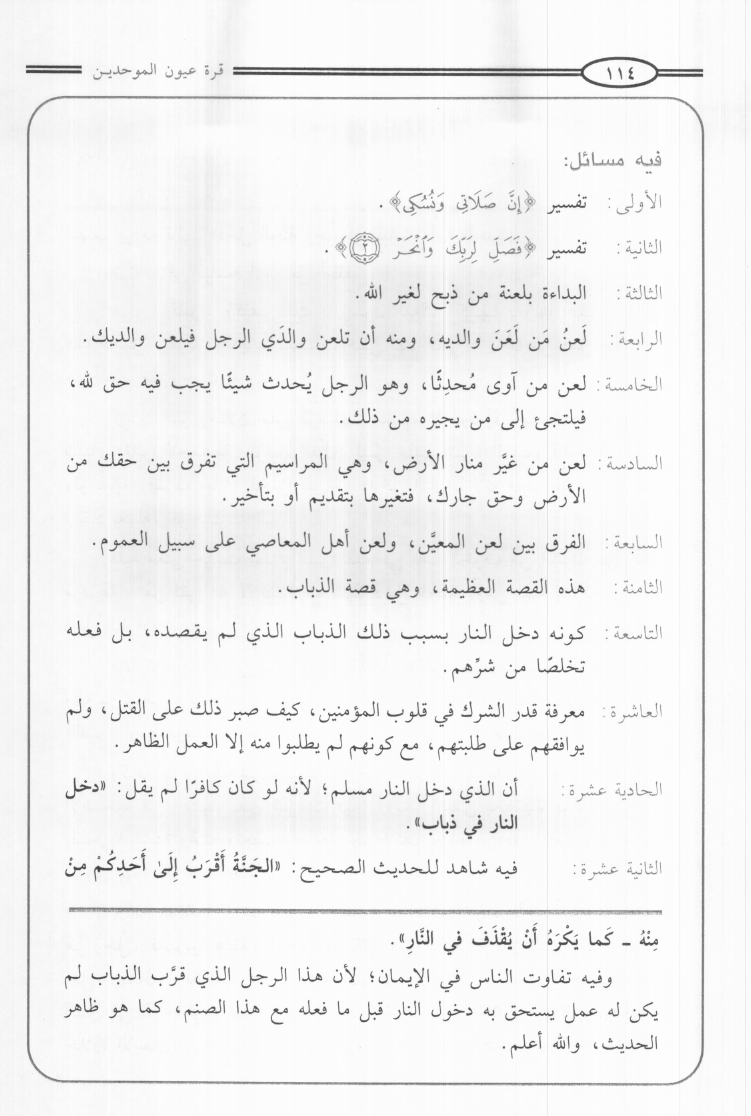 ١١٤ قرة عيون الموحدين
فيه مسائل:
الأولى: تفسير ﴿إِنَّ صَلَاتِي وَنُسُكِي﴾.
الثانية: تفسير ﴿فَصَلِّ لِرَبِّكَ وَٱنْحَرْ ۝٢﴾.
الثالثة: البداءة بلعنة من ذبح لغير الله.
الرابعة: لَعنُ مَن لَعَنَ والديه، ومنه أن تلعن والدَي الرجل فيلعن والديك.
الخامسة: لعن من آوى مُحدِثًا، وهو الرجل يُحدث شيئًا يجب فيه حق لله،
فيلتجئ إلى من يجيره من ذلك.
السادسة: لعن من غيَّر منار الأرض، وهي المراسيم التي تفرق بين حقك من
الأرض وحق جارك، فتغيرها بتقديم أو بتأخير.
السابعة: الفرق بين لعن المعيَّن، ولعن أهل المعاصي على سبيل العموم.
الثامنة: هذه القصة العظيمة، وهي قصة الذباب.
التاسعة: كونه دخل النار بسبب ذلك الذباب الذي لم يقصده، بل فعله
تخلصًا من شرِّهم.
العاشرة: معرفة قدر الشرك في قلوب المؤمنين، كيف صبر ذلك على القتل، ولم
يوافقهم على طلبتهم، مع كونهم لم يطلبوا منه إلا العمل الظاهر.
الحادية عشرة: أن الذي دخل النار مسلم؛ لأنه لو كان كافرًا لم يقل: «دخل
النار في ذباب».
الثانية عشرة: فيه شاهد للحديث الصحيح: «الجَنَّةُ أَقْرَبُ إِلَىٰ أَحَدِكُمْ مِنْ
مِنْهُ ـ كَما يَكْرَهُ أَنْ يُقْذَفَ في النَّارِ».
وفيه تفاوت الناس في الإيمان؛ لأن هذا الرجل الذي قرَّب الذباب لم
يكن له عمل يستحق به دخول النار قبل ما فعله مع هذا الصنم، كما هو ظاهر
الحديث، والله أعلم.